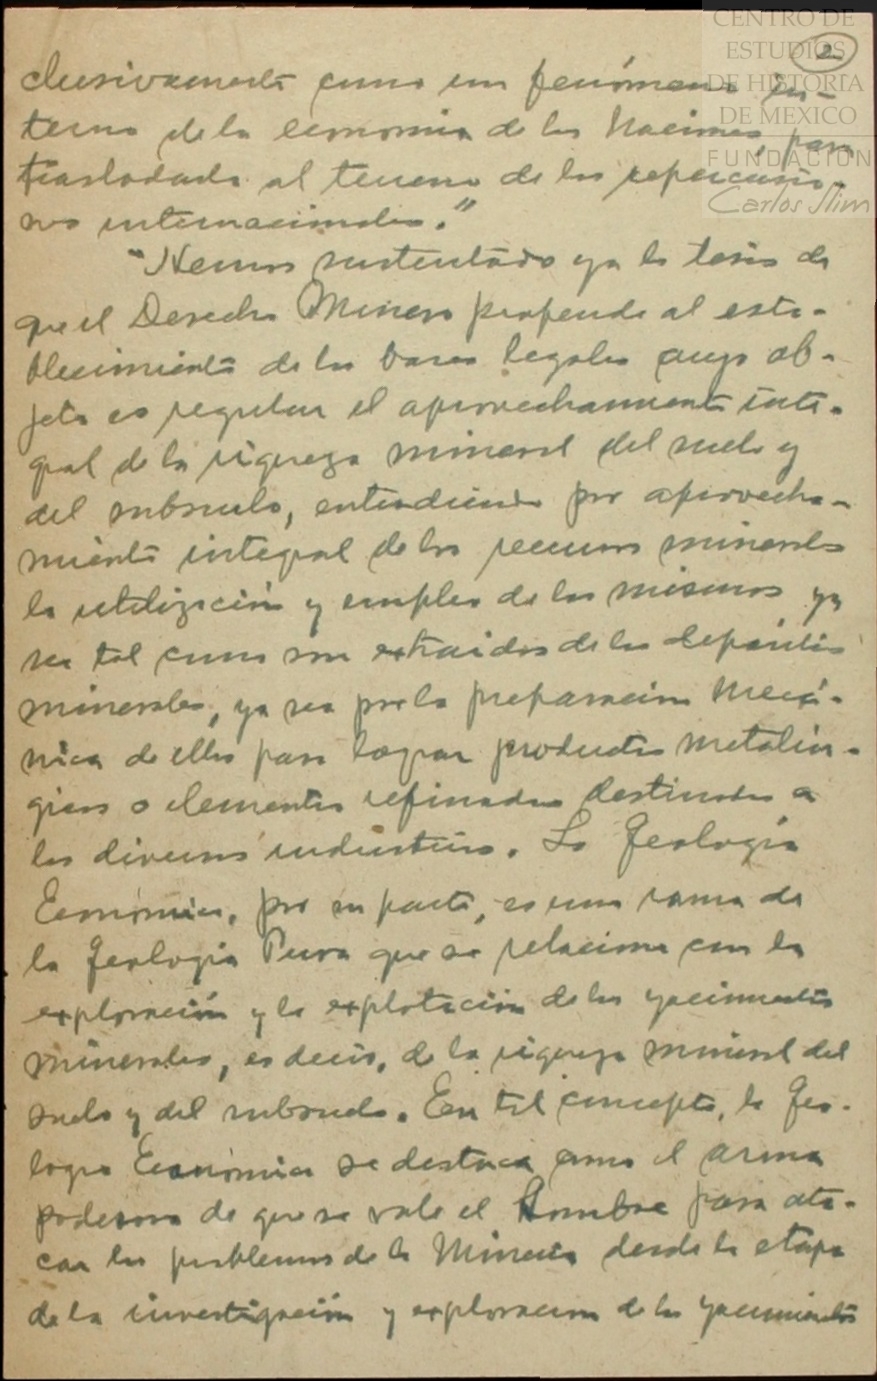 CENTRO DE
ESTUDIOS
DE HISTORIA
DE MEXICO
FUNDACIÓN
Carlos Slim
2
clusivamente como un fenómeno in-
terno de la economía de las Naciones, para
trasladarla al terreno de las repercusio-
nes internacionales."
"Hemos sustentado ya la tesis de
que el Derecho Minero propende al esta-
blecimiento de las bases legales cuyo ob-
jeto es regular el aprovechamiento inte-
gral de la riqueza mineral del suelo y
del subsuelo, entendiendo por aprovecha-
miento integral de los recursos minerales
la utilización y empleo de los mismos ya
sea tal como son extraidos de los depósitos
minerales, ya sea por la preparación mecá-
nica de ellos para lograr productos metalúr-
gicos o elementos refinados destinados a
las diversas industrias. La Geología
Económica, por su parte, es una rama de
la Geología Pura que se relaciona con la
exploración y la explotación de los yacimientos
minerales, es decir, de la riqueza mineral del
suelo y del subsuelo. En tal concepto, la Geo-
logía Económica se destaca como el arma
poderosa de que se vale el Hombre para ata-
car los problemas de la Minería desde la etapa
de la investigación y exploracion de los yacimientos